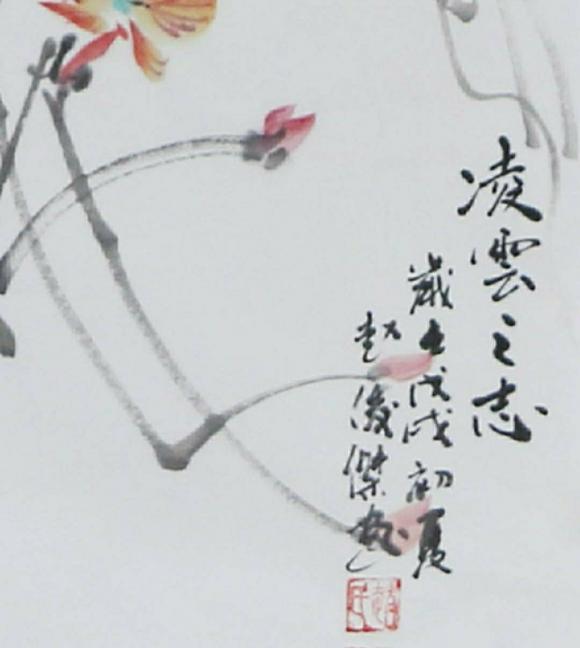 凌雲之志
歲在戊戌初夏
趙俊傑畫